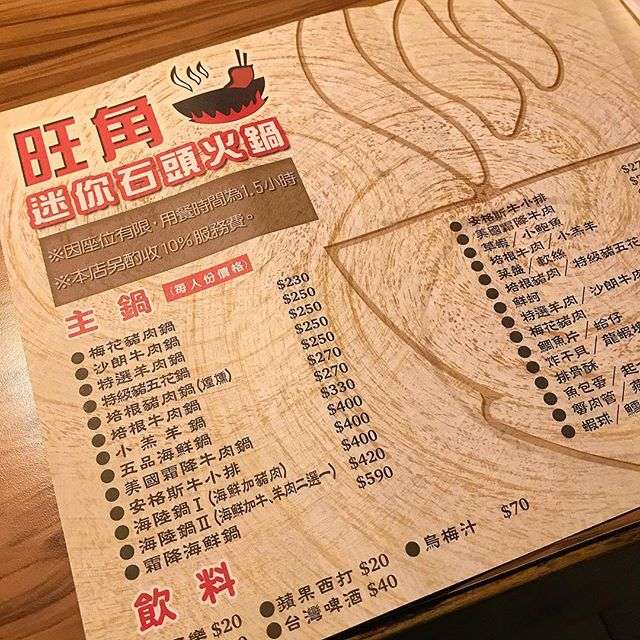 旺角
迷你石頭火鍋
※因座位有限，用餐時間為1.5小時
※本店另酌收10%服務費。
主鍋（每人份價格）
●梅花豬肉鍋 $230
●沙朗牛肉鍋 $250
●特選羊肉鍋 $250
●特級豬五花鍋 $250
●培根豬肉鍋(煙燻) $250
●培根牛肉鍋 $270
●小羔羊鍋 $270
●五品海鮮鍋 $330
●美國霜降牛肉鍋 $400
●安格斯牛小排 $400
●海陸鍋Ⅰ(海鮮加豬肉) $400
●海陸鍋Ⅱ(海鮮加牛、羊肉二選一) $420
●霜降海鮮鍋 $590
飲料
樂 $20
●蘋果西打 $20
●台灣啤酒 $40
●烏梅汁 $70
●安格斯牛小排
●美國霜降牛肉
●草蝦/小鮑魚
●培根牛肉/小羔羊
●菜盤/軟絲
●培根豬肉/特級豬五花
●鮮蚵
●特選羊肉/沙朗牛
●梅花豬肉
●鯛魚片/蛤仔
●炸干貝/龍蝦
●排骨酥
●魚包蛋/起
●蟹肉
●蝦球/鱈